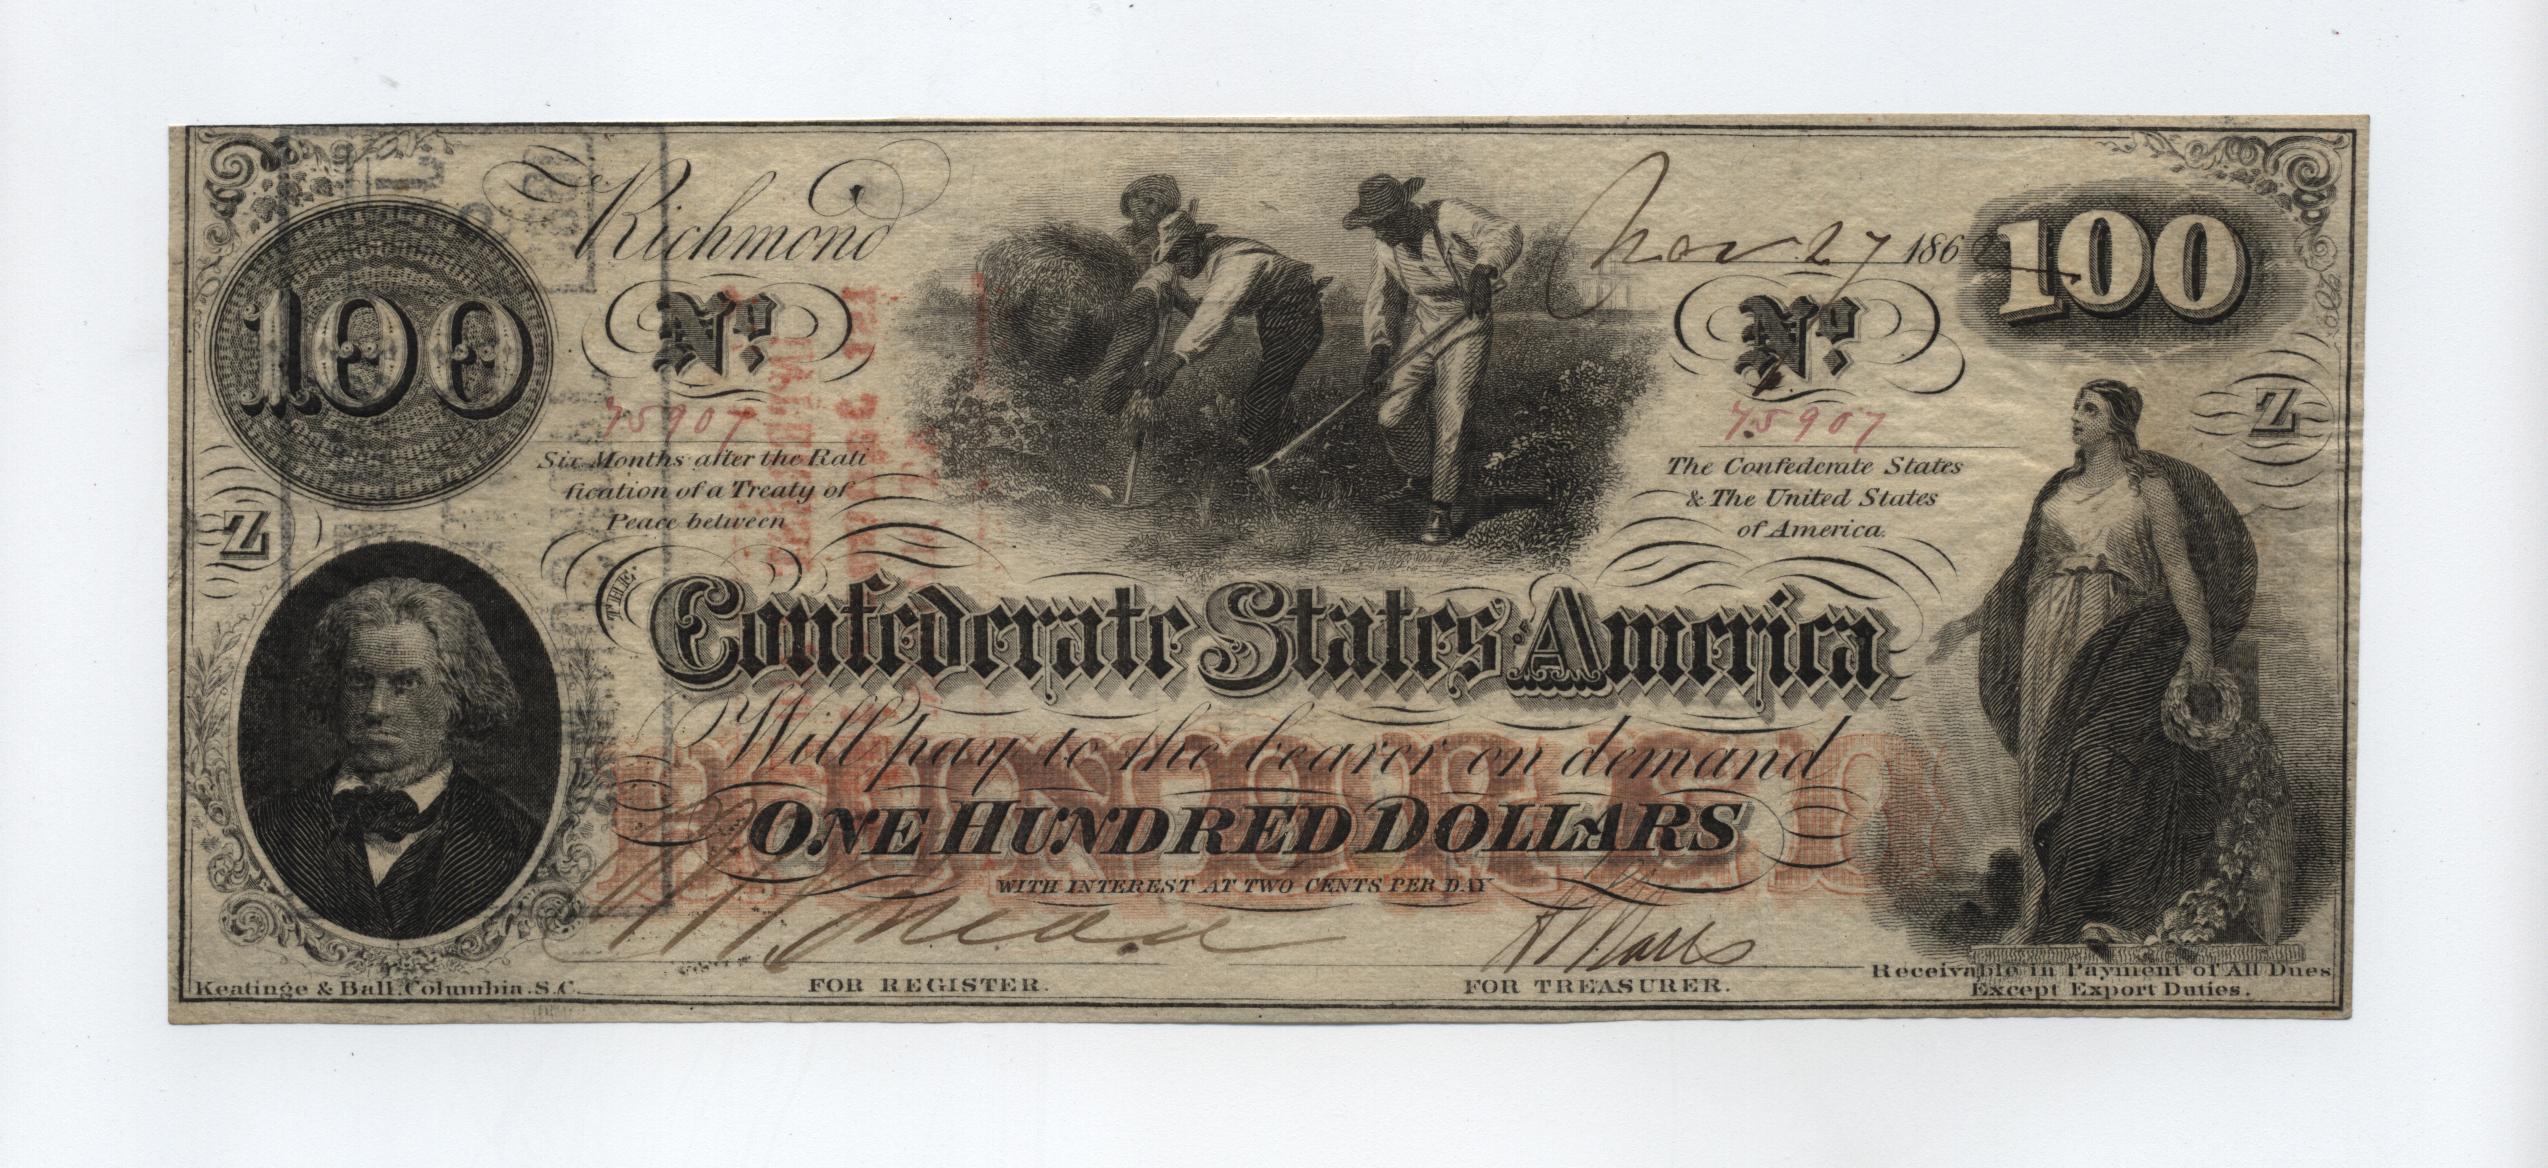 100
Richmond
Nov 27 1862
100
No.
No.
75907
75907
Six Months after the Rati
fication of a Treaty of
Peace between
The Confederate States
& The United States
of America.
Z
Z
THE
Confederate States OF America
Will pay to the bearer on demand
HUNDRED
ONE HUNDRED DOLLARS
WITH INTEREST AT TWO CENTS PER DAY
FOR REGISTER.
FOR TREASURER.
Keatinge & Ball, Columbia, S.C.
Receivable in Payment of All Dues
Except Export Duties.